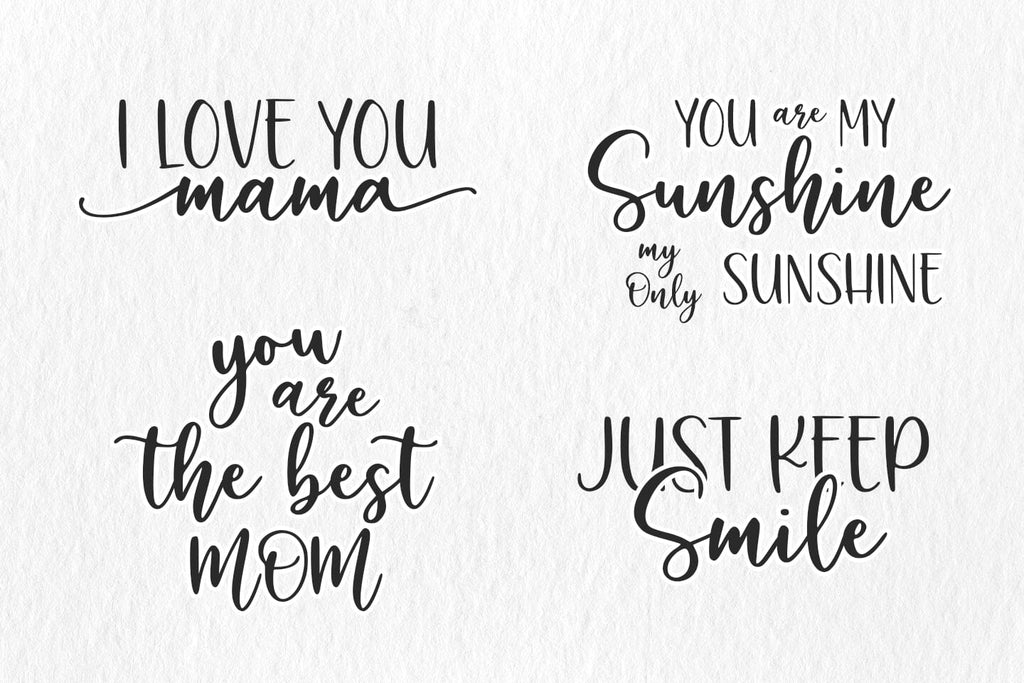 I LOVE YOU
mama
YOU are MY
Sunshine
my
Only SUNSHINE
you
are
the best
MOM
JUST KEEP
Smile